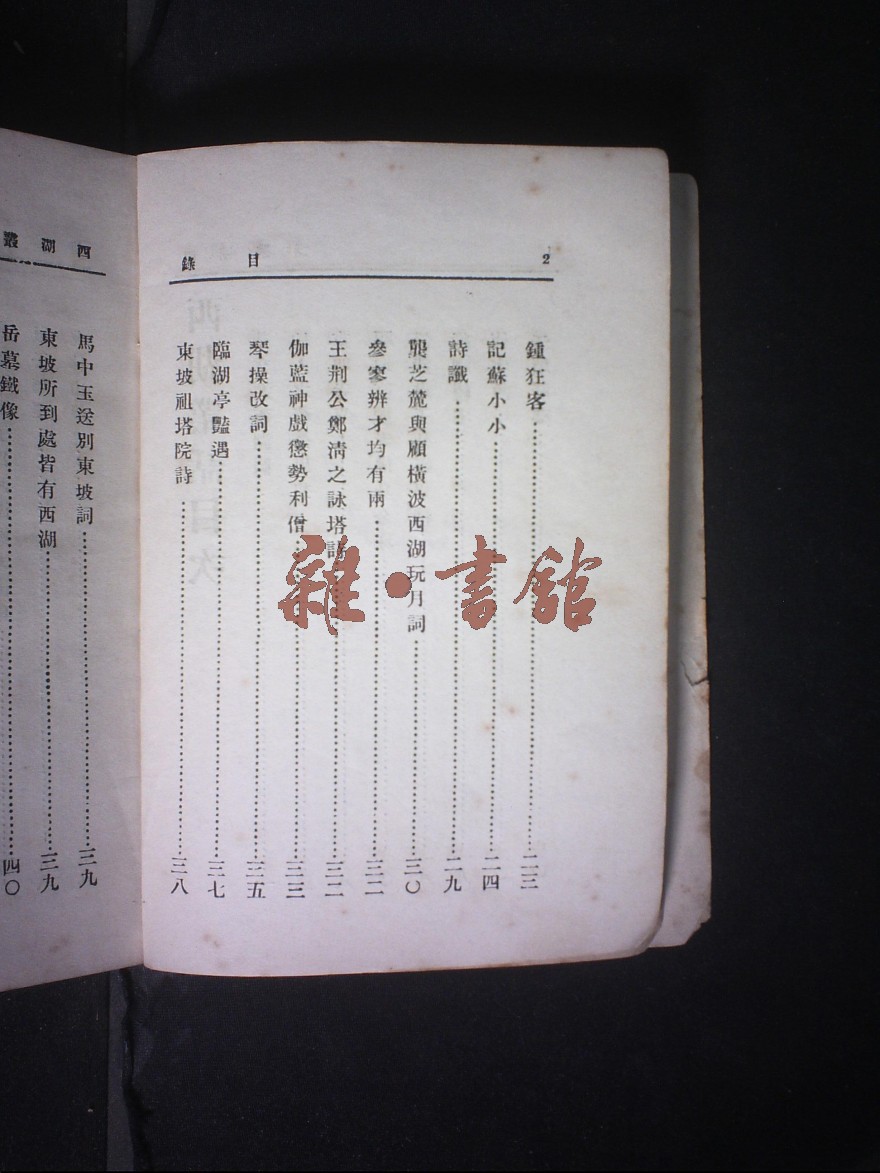 2 目錄
鍾狂客 二三
記蘇小小 二四
詩讖 二九
龔芝麓與顧橫波西湖玩月詞 三〇
參寥辨才均有兩 三二
王荆公鄭清之詠塔詩 三二
伽藍神戲懲勢利僧 三三
琴操改詞 三五
臨湖亭豔遇 三七
東坡祖塔院詩 三八
西湖叢
馬中玉送別東坡詞 三九
東坡所到處皆有西湖 三九
岳墓鐵像 四〇
雜·書館